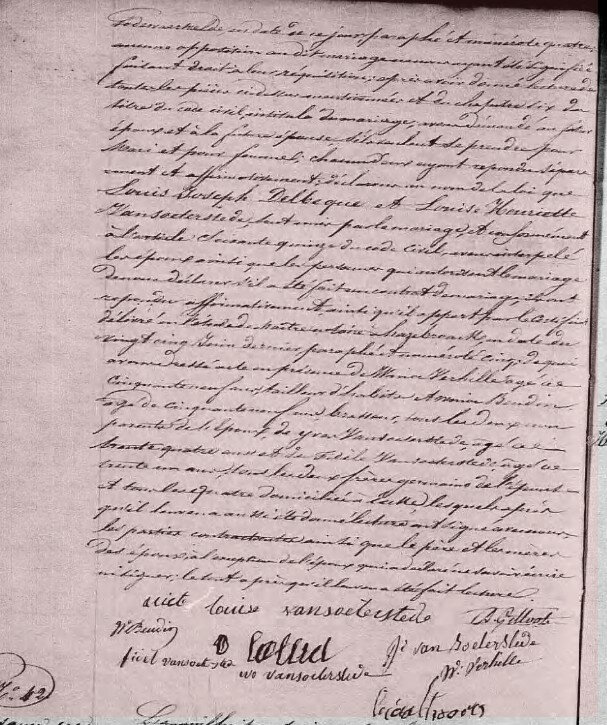 en date de ce jour paraphé et numéroté quatre,
aucune opposition au dit mariage ne nous ayant été signifiée
faisant droit à leur réquisition, après avoir donné lecture de
toutes les pièces ci dessus mentionnées et du chapitre six du
titre du code civil intitulé du mariage, avons demandé au futur
époux et à la future épouse s'ils veulent se prendre pour
Mari et pour femme, chacun d'eux ayant répondu séparé
ment et affirmativement, déclarons au nom de la loi que
Louis Joseph Delbeque et Louise Henriette
Vansoeterstede, sont unis par le mariage, et conformément
à l'article Soixante quinze du code civil, avons interpelé
les époux ainsi que les personnes qui autorisent le mariage
de nous déclarer s'il a été fait un contrat de mariage, ils ont
répondu affirmativement ainsi qu'il appert par le certificat
délivré notaire à hazebrouck, en date du
vingt cinq Juin dernier paraphé et numéroté cinq, de quoi
avons dressé acte en présence de Verhille agé de
cinquante neuf ans, tailleur d'habits, Beudin
agé de cinquante neuf ans, brasseur, tous les deux non
parents de l'époux, de yvo Vansoeterstede, agé de
trente quatre ans et de Fidele Vansoeterstede agé de
trente un ans, tous les deux frères germains de l'épouse
et tous les quatre domiciliés à lesquels après
qu'il leur en a aussi été donné lecture ont signé avec nous,
les parties contractantes ainsi que le père et les mères
des époux, à l'exception de l'époux qui a déclaré ne savoir écrire
ni signer, le tout après qu'il leur en a été fait lecture
louise vansoeterstede
Beudin
fidel vansoeterstede
ivo vansoeterstede
van Soeterstede
Verhille
N° 42